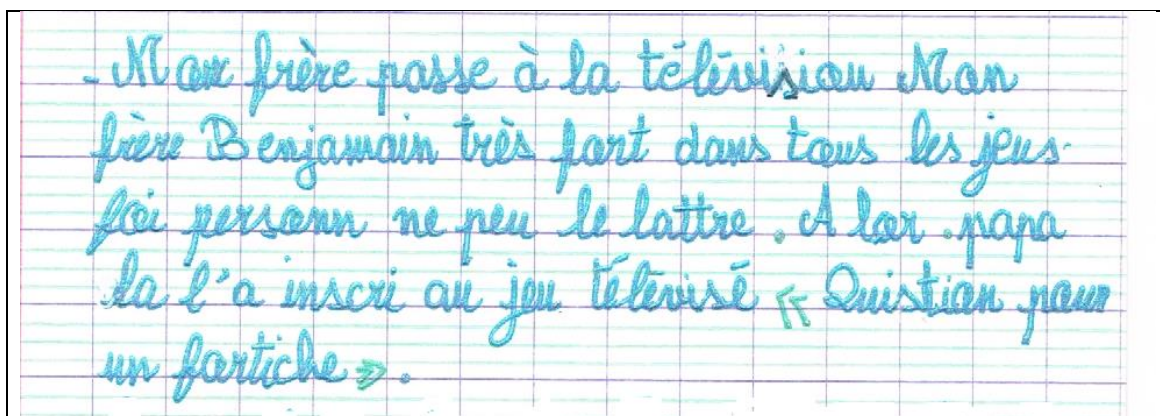 - Mon frère passe à la télévision Mon
frère Benjamain très fort dans tous les jeus.
foi personn ne peu le lattre. A lor. papa
la l'a inscri au jeu télévisé «Quistion pour
un fortiche».